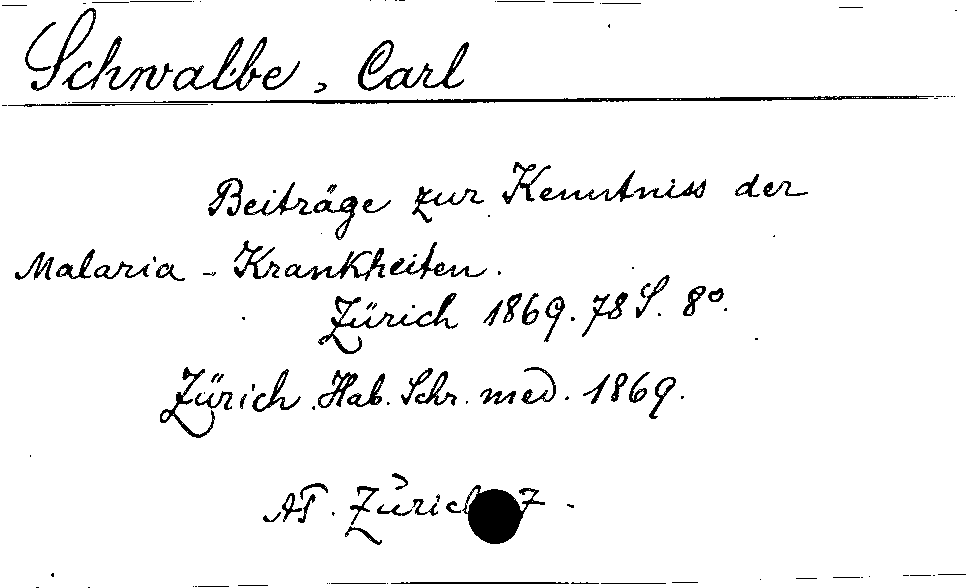 Schwalbe, Carl
Beiträge zur Kenntniss der
Malaria-Krankheiten.
Zürich 1869. 78 S. 8°.
Zürich Hab. Schr. med. 1869.
AT. Zürich 7.